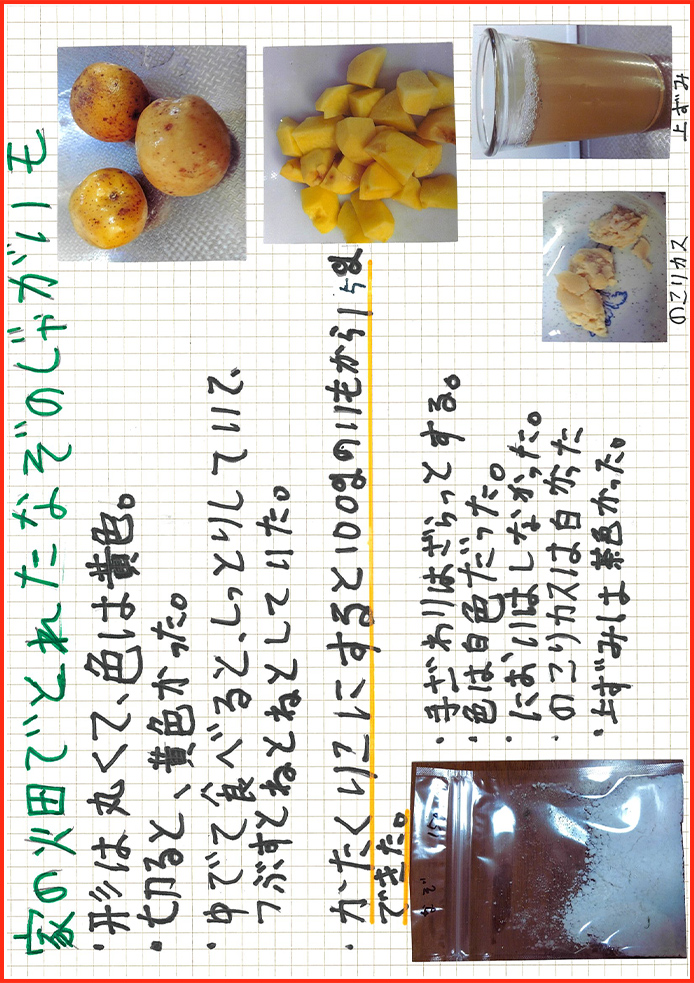 家の畑でとれたなぞのじゃがいも
・形は丸くて、色は黄色。
・切ると、黄色かった。
・ゆでて食べると、しっとりしていて、
つぶすとねとねとしていた。
・かたくりこにすると100gのいもから15g
できた。
・手ざわりはざらっとする。
・色は白色だった。
・においはしなかった。
・のこりカスは白かった
・上ずみは茶色かった。
上ずみ
のこりカス
なぞ